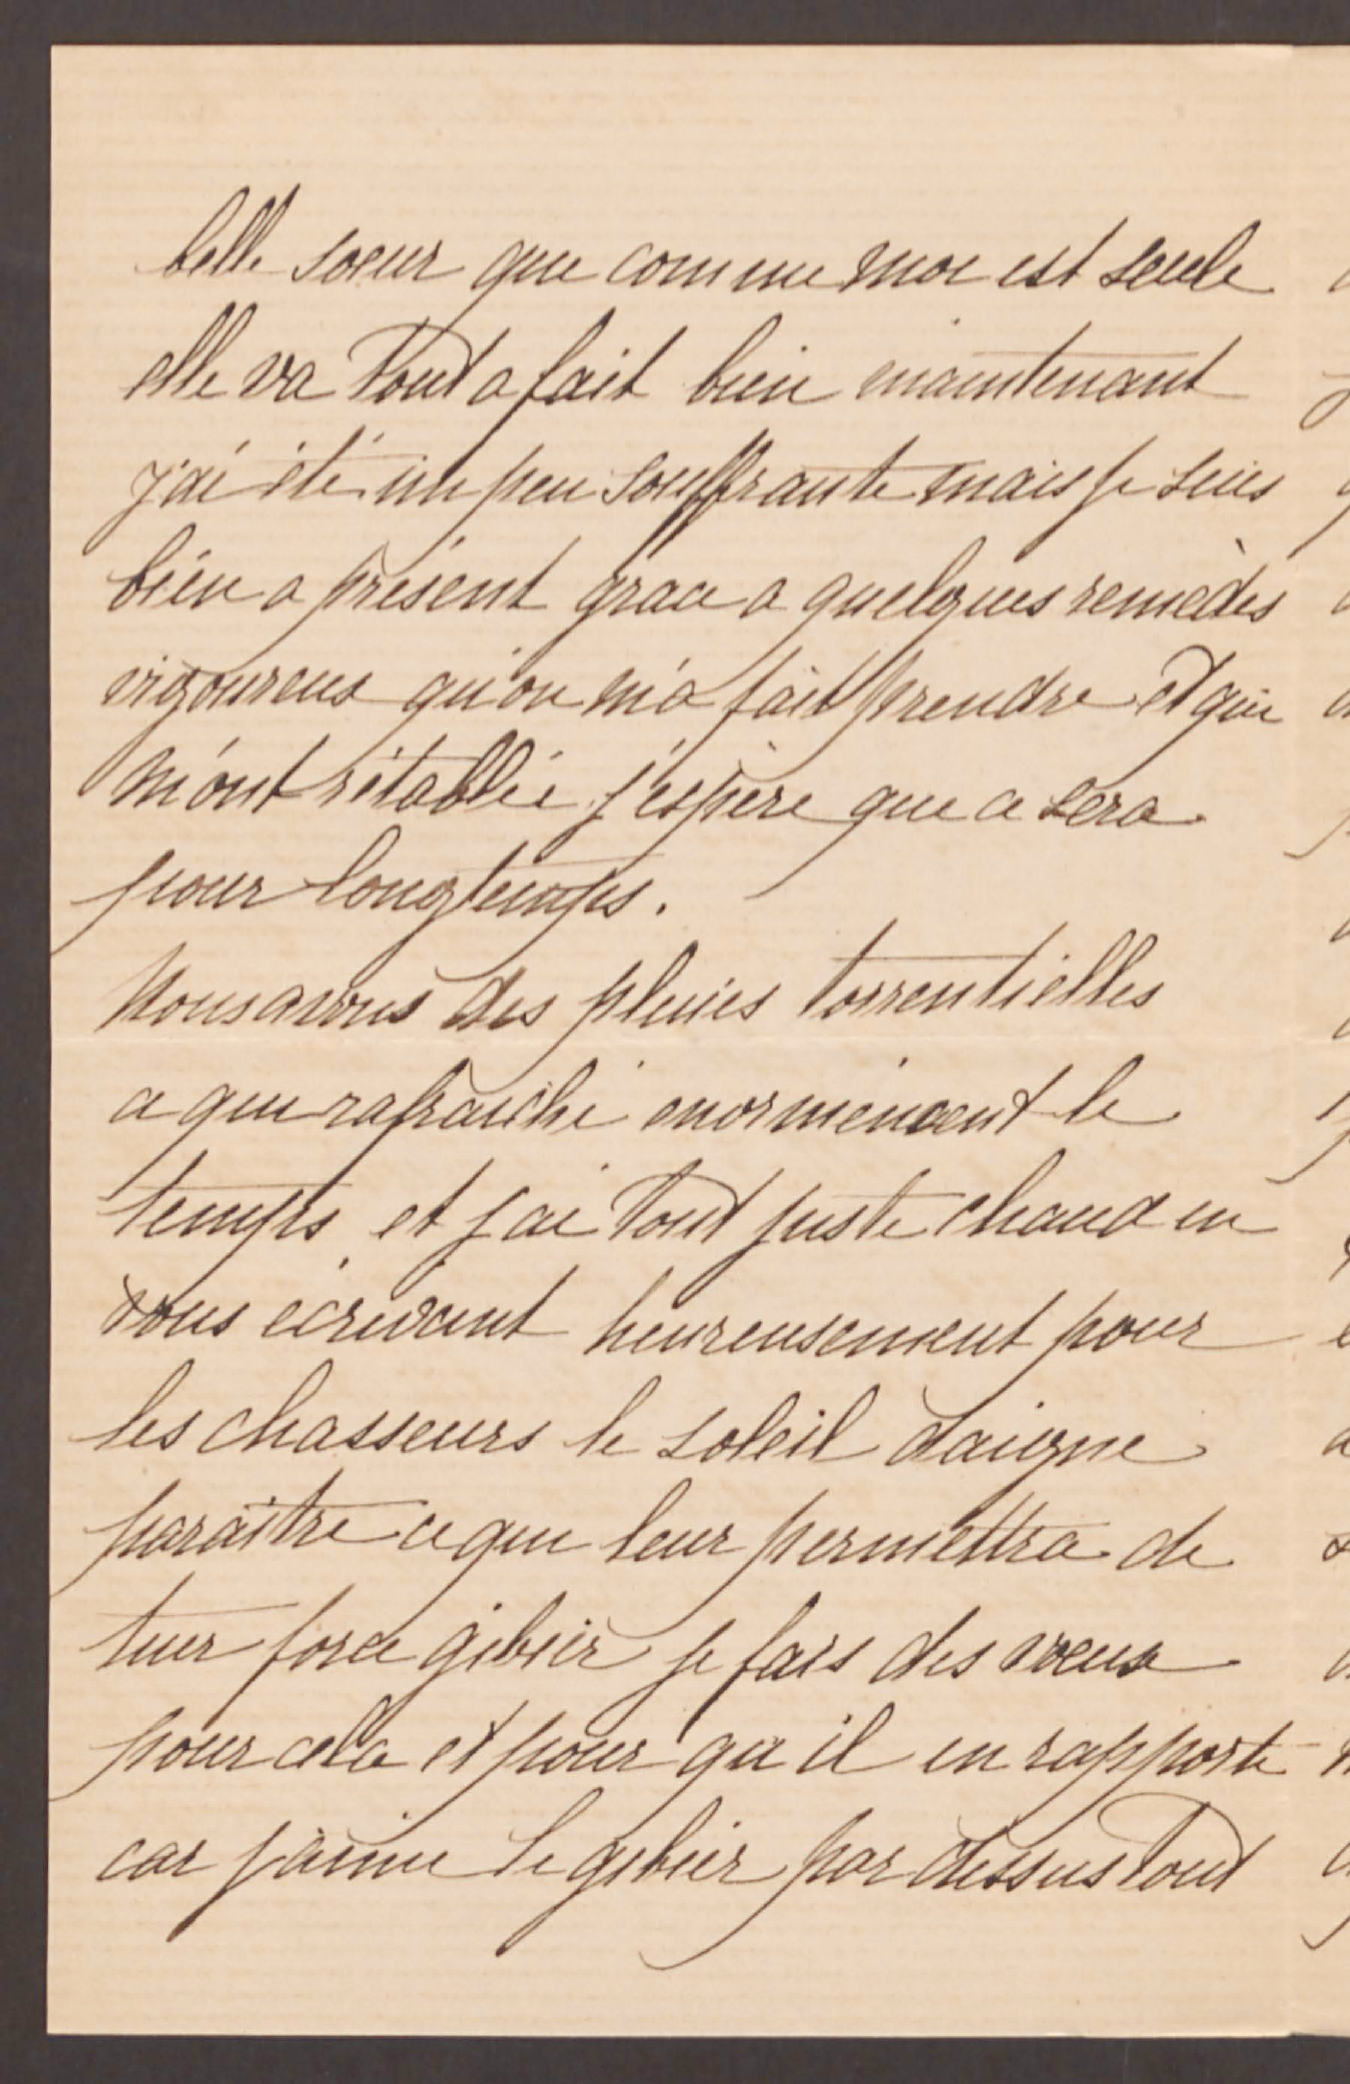 belle sœur qui comme moi est seule
elle va tout a fait bien maintenant
j'ai été un peu souffrante mais je suis
bien a présent grace a quelques remèdes
vigoureux qu'on m'a fait prendre et qui
m'ont rétablie j'espère que ce sera
pour longtemps.
Nous avons des pluies torrentielles
ce qui rafraichi enormément le
temps, et j'ai tout juste chaud en
vous écrivant heureusement pour
les chasseurs le soleil daigne
paraître ce qui leur permettra de
tuer force gibier je fais des vœux
pour cela et pour qu'il en rapporte
car j'aime le gibier par dessus tout